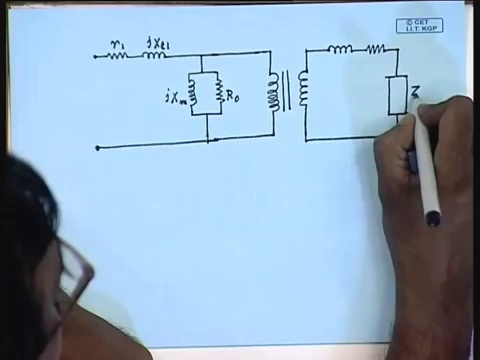 © CET
I.I.T. KGP
r1 jXl1
jXm R0 Z